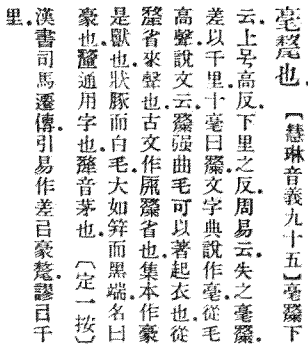 毫氂也　〔慧琳音義九十五〕毫氂下
云。上号高反下里之反周易云失之毫氂。
差以千里十毫曰氂文字典說作毫從毛
高聲說文云氂强曲毛可以著起衣也從
犛省來聲也古文作𣮉氂省也集本作豪
是獸也狀豚而白毛大如笄而黑端名曰
豪也釐通用字也犛音茅也　〔定一按〕
漢書司馬遷傳引易作差㠯豪氂謬㠯千
里。